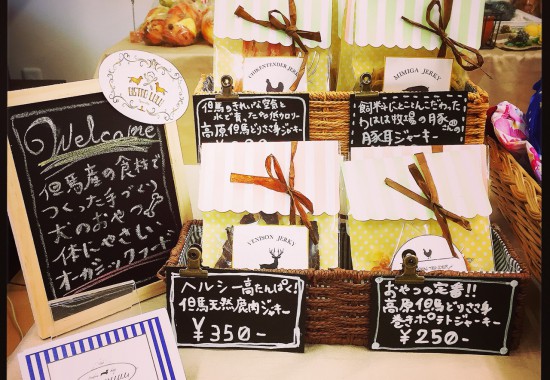 Welcome
但馬産の食材で
つくった手づくり
犬のおやつ
体にやさしい
オーガニックフード
BISTRO LULU
CHIKENTENDER JERKY
但馬のきれいな空気と
水で育ったかな低カロリー
高原但馬どりささ身ジャーキー
MIMIGA JERKY
飼料にとことんこだわった
わはは牧場の豚さんの
豚耳ジャーキー
VENISON JERKY
ヘルシー高たんぱく!
但馬天然鹿肉ジャーキー
¥350-
おやつの定番!!
高原但馬どりささ身
巻きポテトジャーキー
¥250-